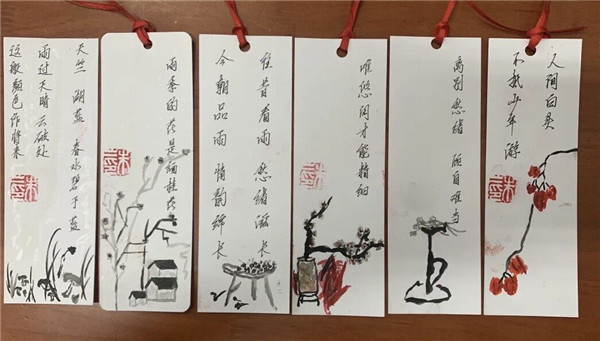 天竺 湖蓝 春水碧于蓝
雨过天晴云破处
这般颜色作将来
雨季的花是细桂花
往昔看雨 愁绪滋长
今朝品雨 情韵绵长
唯悠闲才能精细
离别愁绪 自
人间白
不抵少年游